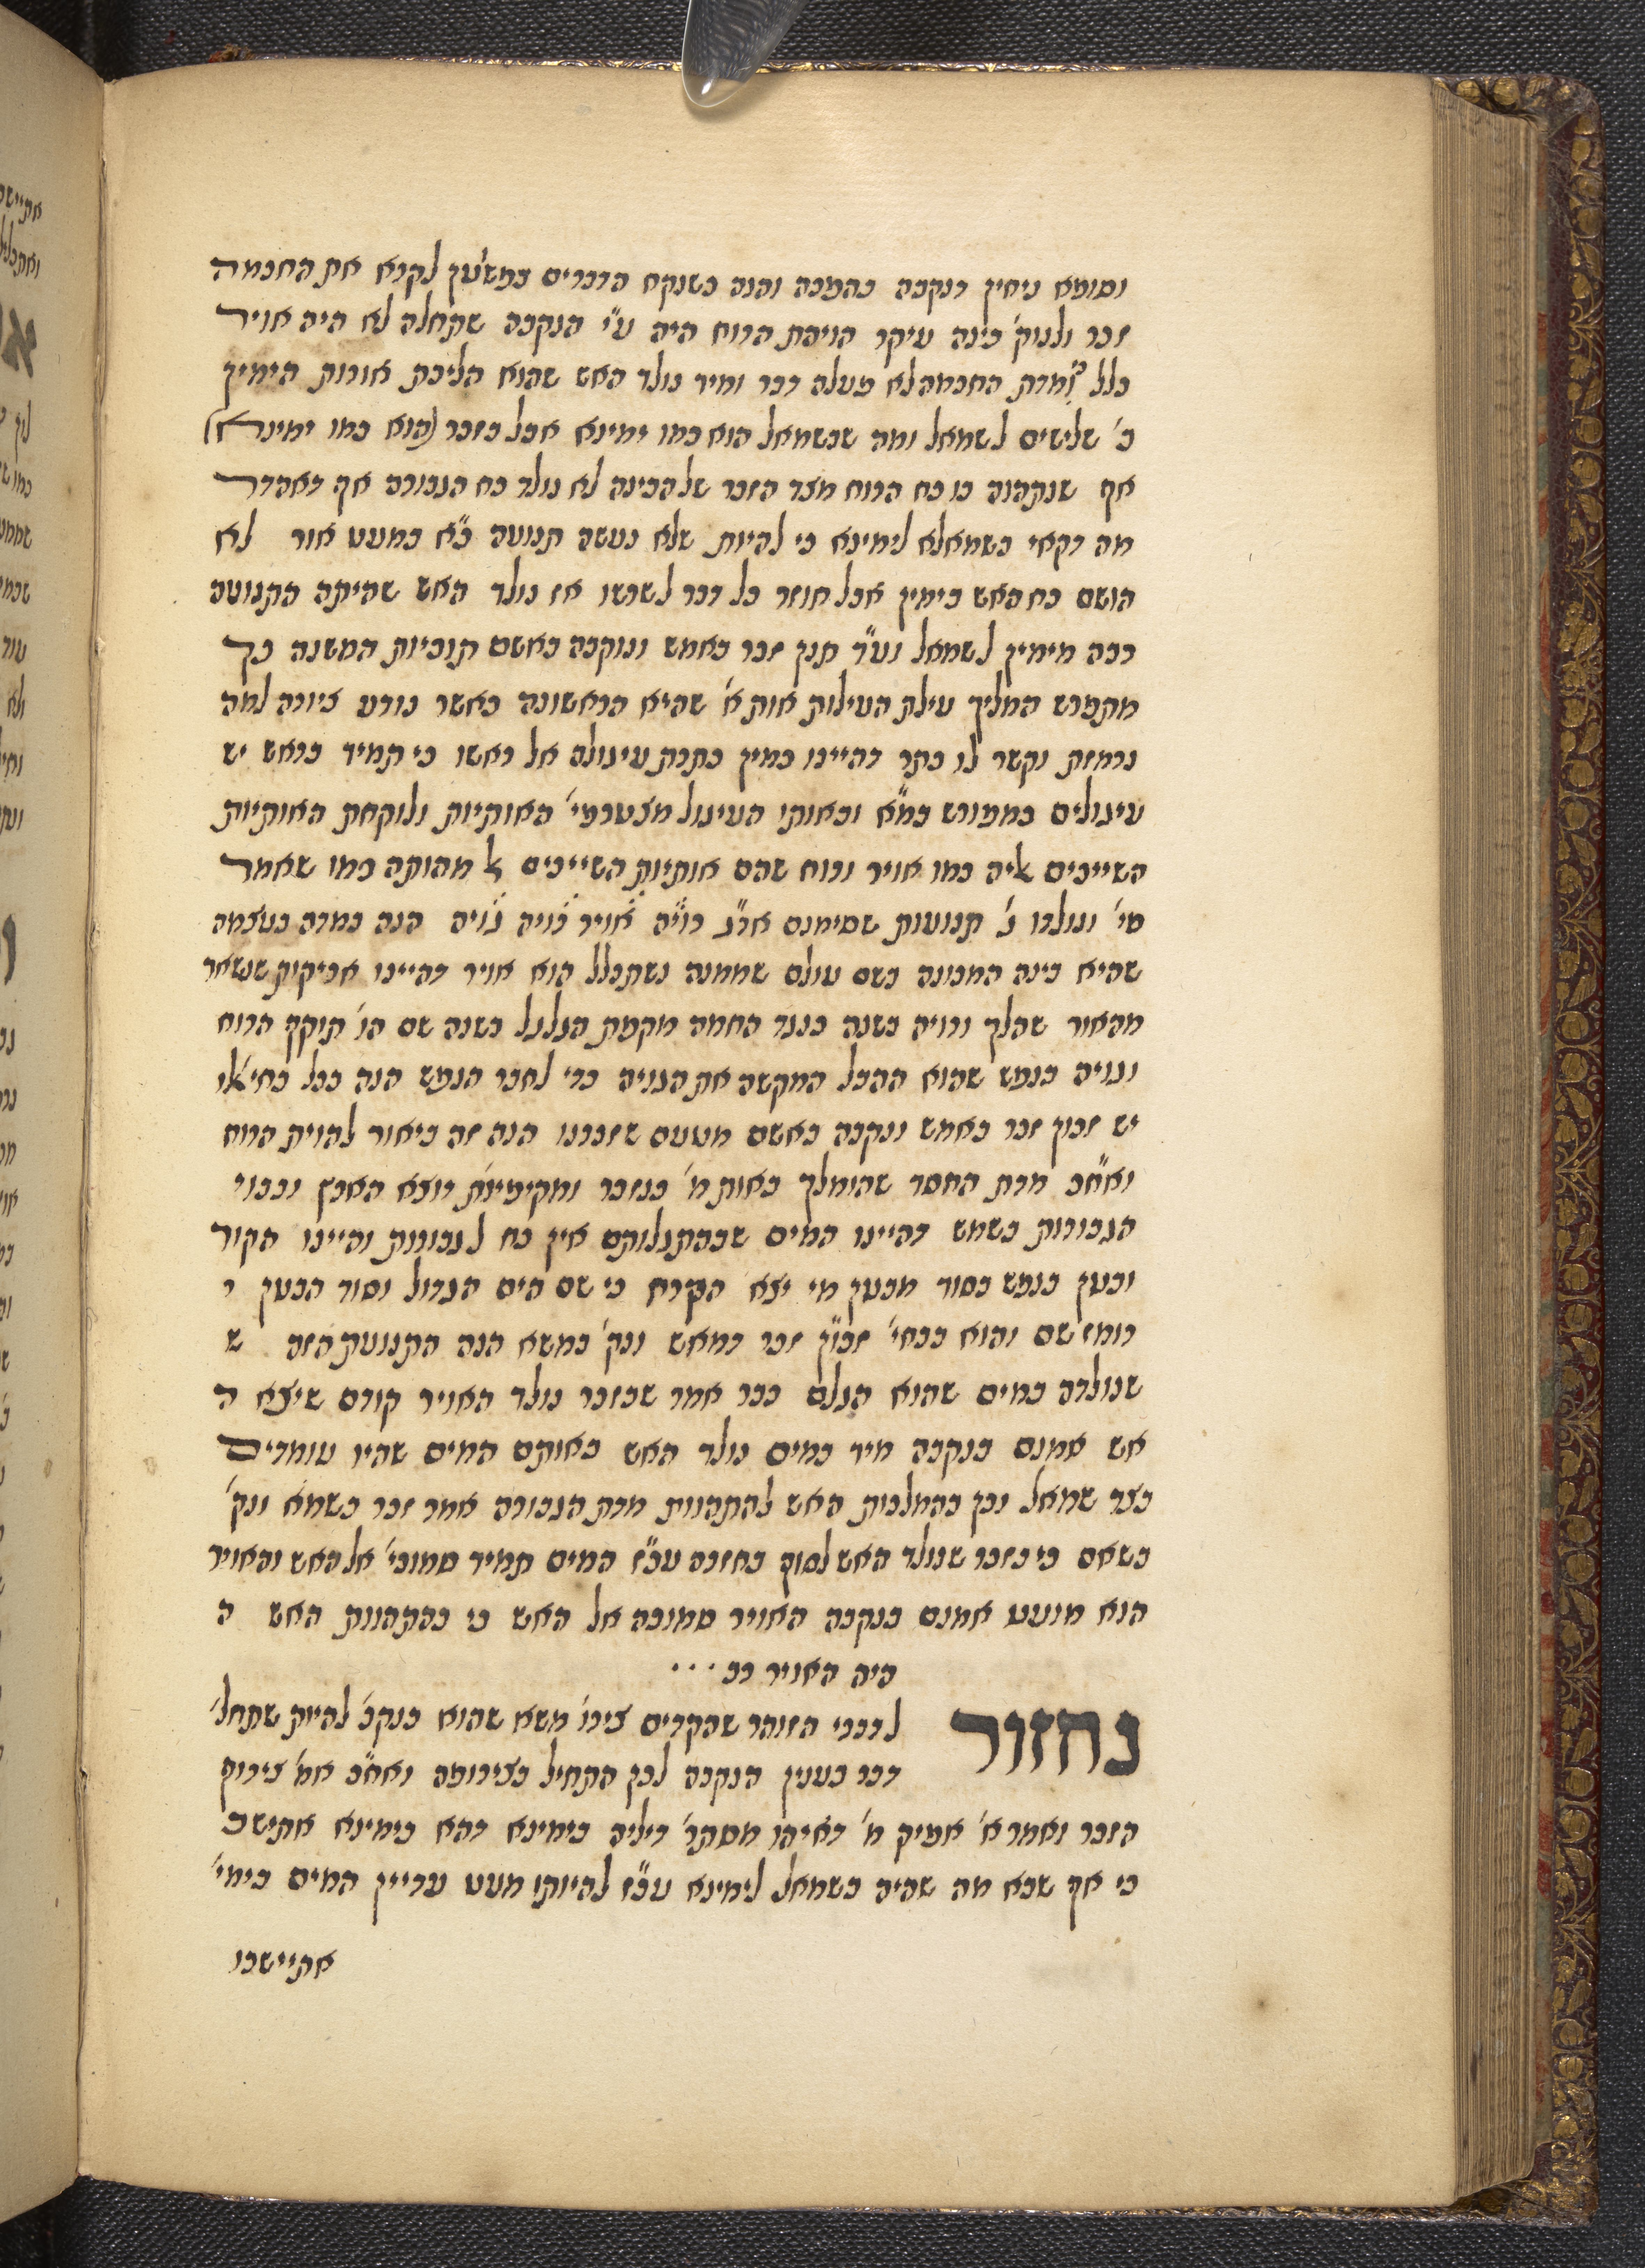 וסומא ניחין דנקבה בהמכה והנה כשנקח הדברים כמשען לקרא את החכמה
זכר ולנוק' בינה עיקר הויפת הרוח היה ע"י הנקבה שתחלה לא היה אויר
כלל ומדת החכמה לא פעלה דבר ומיד נולד האש שהוא הליכת אורות הימין
ב' שלישים לשמאל ומה שבשמאל הוא כמו ימינא אבל בזכר (הוא כמו ימינא)
אף שנתהוה בו כח הרוח מצד הזכר של הבינה לא נולד כח הגבורה אף דאהדר
מה דקאי בשמאלא לימינא כי להיות שלא נעשה תנועה כ"א במעט אור לא
הושם כח האש בימין אבל חוזר כל דבר לשרשו אז נולד האש שהיתה התנועה
רבה מימין לשמאל וע"ד תנן זכר באמש ונוקבה באשם תוכיות המשנה כך
מתפרש המליך עילת העילות אות א' שהיא הראשונה כאשר נודע ציורה למה
נרמזת וקשר לו כתר דהיינו כמין כתרת עיגולה אל ראשו כי תמיד בראש יש
עיגולים כמפורש במ"א ובאותו העיגול מצטרפי' האותיות ולוקחת האותיות
השייכים אליה כמו אויר ורוח שהם אותיות השייכים לו מהוקה כמו שאמר
מי' ונולדו ג' תנועות שסימנם אר"ג רו"יה אויר רויה גויה הנה במדה בעצמה
שהיא בינה המכונה בשם עולם שממנה נשתכלל הוא אויר דהיינו אביקות שנשאר
מהאור שהלך ורויה בשנה כנגד החמה מקפת הגלגל בשנה שם הו' תוקף הרוח
וגויה בנפש שהוא ההבל המקשה את הגויה כדי לחבר הנפש הנה בכל בחי' אלו
יש זכון זכר באמש ונקבה באשם מטעם שזכרנו הנה זה ביאור להוית הרוח
ואח"כ מדת החסד שהומלך באות מ' כנזכר ומקימינת יוצא הארץ וכבוי
הגבורות בשמש דהיינו המים שבהתגלותם אין כח לגבורות והיינו הקור
ובטן בנפש בסוד מבטן מי יצא הקרח כי שם הים הגדול וסוד הבטן י
רומז שם והוא בבחי' זכו"ן זכר דמאש ונק' במשא הנה התנועת הזה ש
שנולדה במים שהוא הגלם כבר אמר שבזכר נולד האויר קודם שיצא ה
אש אמנם בנקבה מיד במים נולד האש באותם המים שהיו עומדים
בצד שמאל וכן בהמלכות האש להתהוות מדת הגבורה אמר זכר בשמא ונק'
בשאם כי בזכר שנולד האש לסוף בחזרה עכ"ז המים תמיד סמוכי' אל האש והאויר
הוא מועט אמנם בנקבה האויר סמוכה אל האש כי בהתהוות האש ה
היה האויר רב . . .
נחזור לדברי הזוהר שהקדים צירו' משא שהוא בנקב' להיות שתחל'
דבר בענין הנקבה לכן התחיל בצירופה ואח"כ אמ' צירוף
הזכר ואמר א' אפיק מ' דאיהו מסתר' דיליה בימינא דהא בימינא אתישב
כי אף שבא מה שהיה בשמאל לימינא עכ"ז להיותו מעט עדיין המים בימי'
אתיישבו